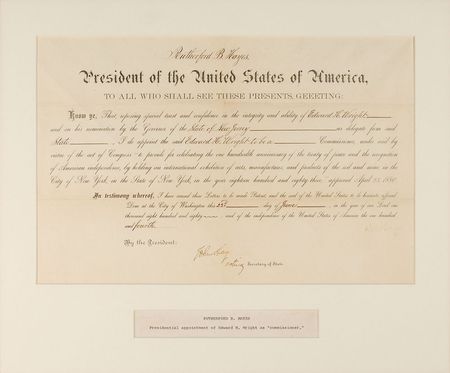 Rutherford B. Hayes,
President of the United States of America,
TO ALL WHO SHALL SEE THESE PRESENTS, GREETING:
Know ye, That reposing special trust and confidence in the integrity and ability of Edward H. Wright
and on his nomination by the Governor of the State of New Jersey as delegate from said
State, I do appoint the said Edward H. Wright to be a Commissioner, under and by
virtue of the act of Congress "to provide for celebrating the one hundredth anniversary of the treaty of peace and the recognition
of American independence, by holding an international exhibition of arts, manufactures, and products of the soil and mine, in the
City of New York, in the State of New York, in the year eighteen hundred and eighty three," approved April 23, 1880.
In testimony whereof, I have caused these Letters to be made Patent, and the seal of the United States to be hereunto affixed.
Done at the City of Washington this day of June, in the year of our Lord one
thousand eight hundred and eighty and of the independence of the United States of America the one hundred
and fourth.
By the President:
John Hay
Acting Secretary of State.
RUTHERFORD B. HAYES
Presidential appointment of Edward H. Wright as "commissioner."